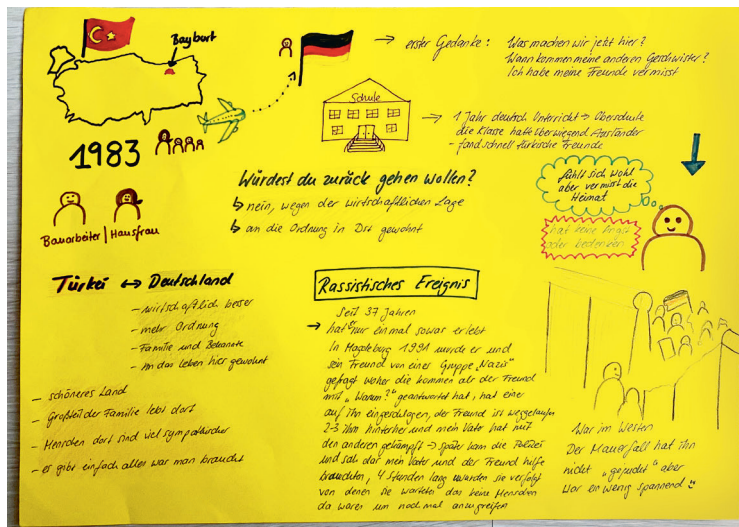 Bayburt
1983
Bauarbeiter | Hausfrau
→ erster Gedanke: Was machen wir jetzt hier?
Wann kommen meine anderen Geschwister?
Ich habe meine Freunde vermisst
Schule
→ 1 Jahr deutsch Unterricht → Oberschule
die Klasse hatte überwiegend Ausländer
- fand schnell türkische Freunde
Würdest du zurück gehen wollen?
↳ nein, wegen der wirtschaftlichen Lage
↳ an die Ordnung in Dtl gewohnt
fühlt sich wohl
aber vermisst die
Heimat
hat keine Angst
oder bedenken
Türkei ↔ Deutschland
- wirtschaftlich besser
- mehr Ordnung
- Familie und Bekannte
- An das Leben hier gewohnt
- schöneres Land
- Großteil der Familie lebt dort
- Menschen dort sind viel sympathischer
- es gibt einfach alles was man braucht
Rassistisches Ereignis
Seit 37 Jahren
→ hat er nur einmal sowas erlebt
In Magdeburg 1991 wurde er und
sein Freund von einer Gruppe „Nazis"
gefragt woher die kommen als der Freund
mit „Warum?" geantwortet hat, hat einer
auf ihn eingeschlagen, der Freund ist weggelaufen
2-3 ihm hinterher und mein Vater hat mit
den anderen gekämpft → später kam die Polizei
und sah das mein Vater und der Freund hilfe
brauchten, 4 Stunden lang wurden sie verfolgt
von denen die warteten das keine Menschen
da waren um noch mal anzugreifen
War im Westen
Der Mauerfall hat ihn
nicht „gejuckt" aber
war ein wenig spannend